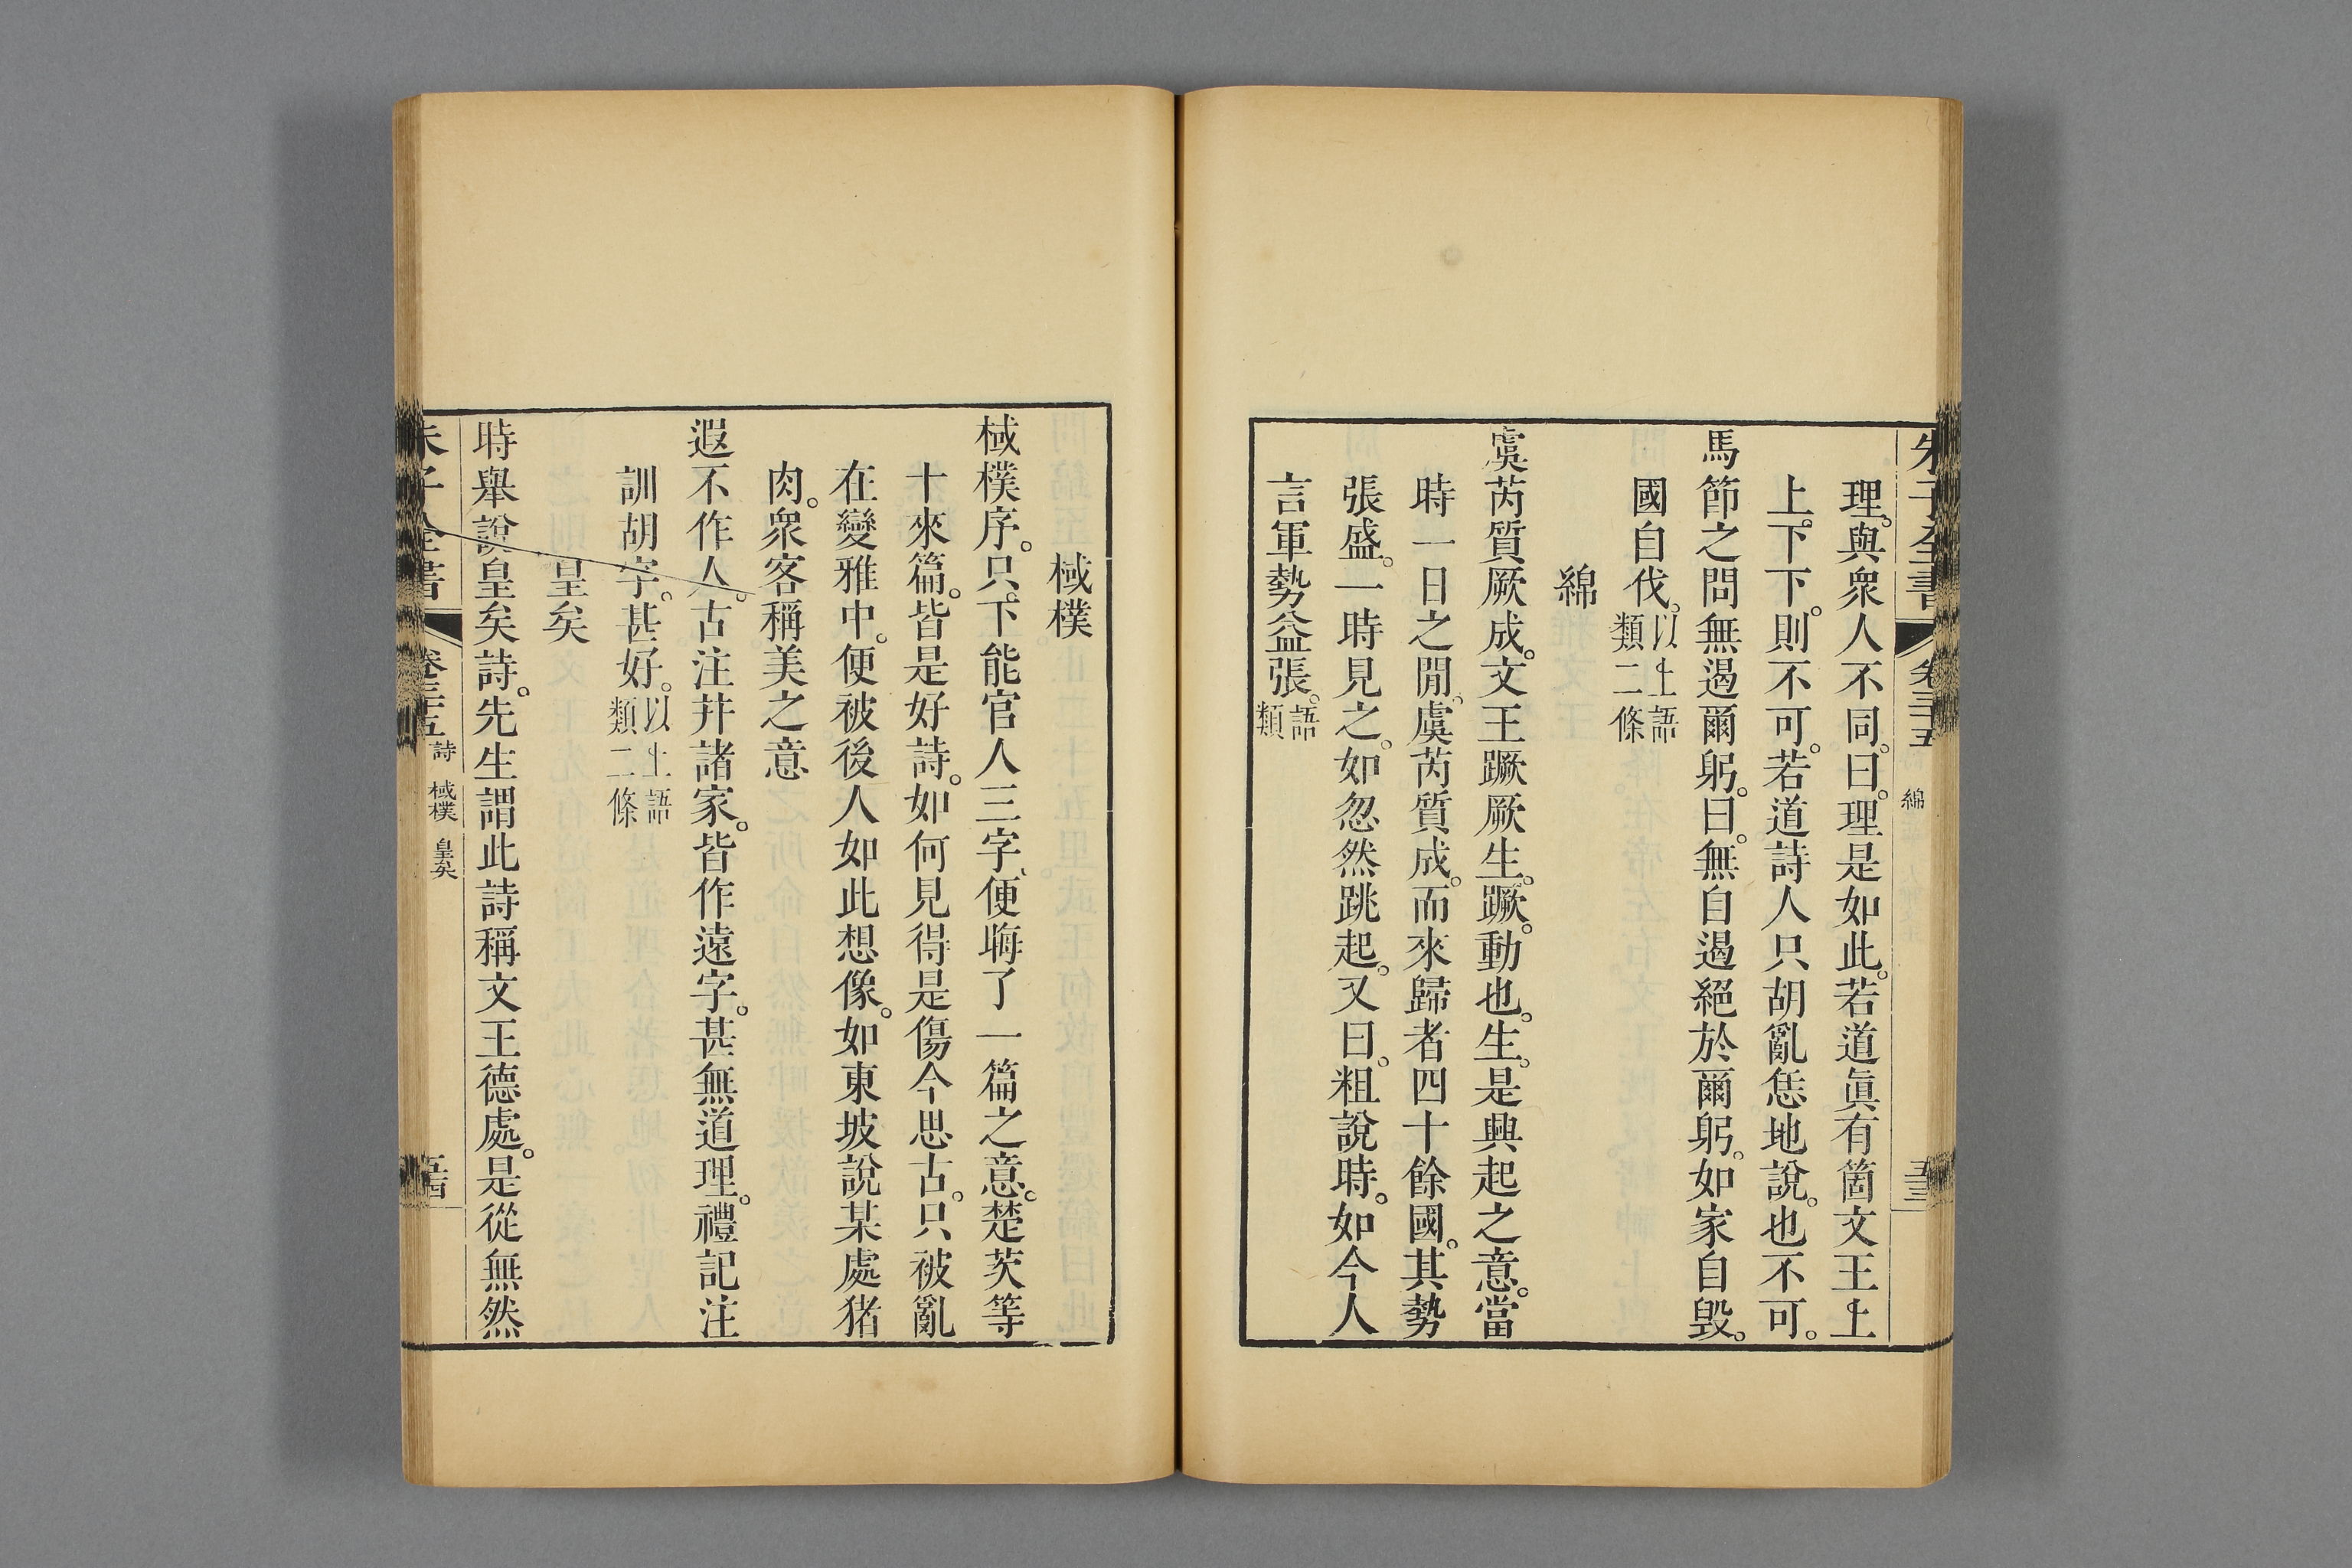 朱子全書 卷三十五 綿 五十三
理與衆人不同。曰。理是如此。若道眞有箇文王上
上下下。則不可。若道詩人只胡亂恁地說。也不可。
馬節之問無遏爾躬。曰。無自遏絕於爾躬。如家自毁。
國自伐。以上語類二條
綿
虞芮質厥成。文王蹶厥生。蹶。動也。生。是興起之意。當
時一日之閒。虞芮質成。而來歸者四十餘國。其勢
張盛。一時見之。如忽然跳起。又曰。粗說時。如今人
言軍勢益張。語類
棫樸
棫樸序。只下能官人三字、便晦了一篇之意。楚茨等
十來篇。皆是好詩。如何見得是傷今思古。只被亂
在變雅中。便被後人如此想像。如東坡說某處猪
肉。衆客稱美之意
遐不作人。古注幷諸家。皆作遠字。甚無道理。禮記注
訓胡字。甚好。以上語類二條
皇矣
時舉說皇矣詩。先生謂此詩稱文王德處。是從無然
朱子全書 卷三十五 詩 棫樸 皇矣 五十四